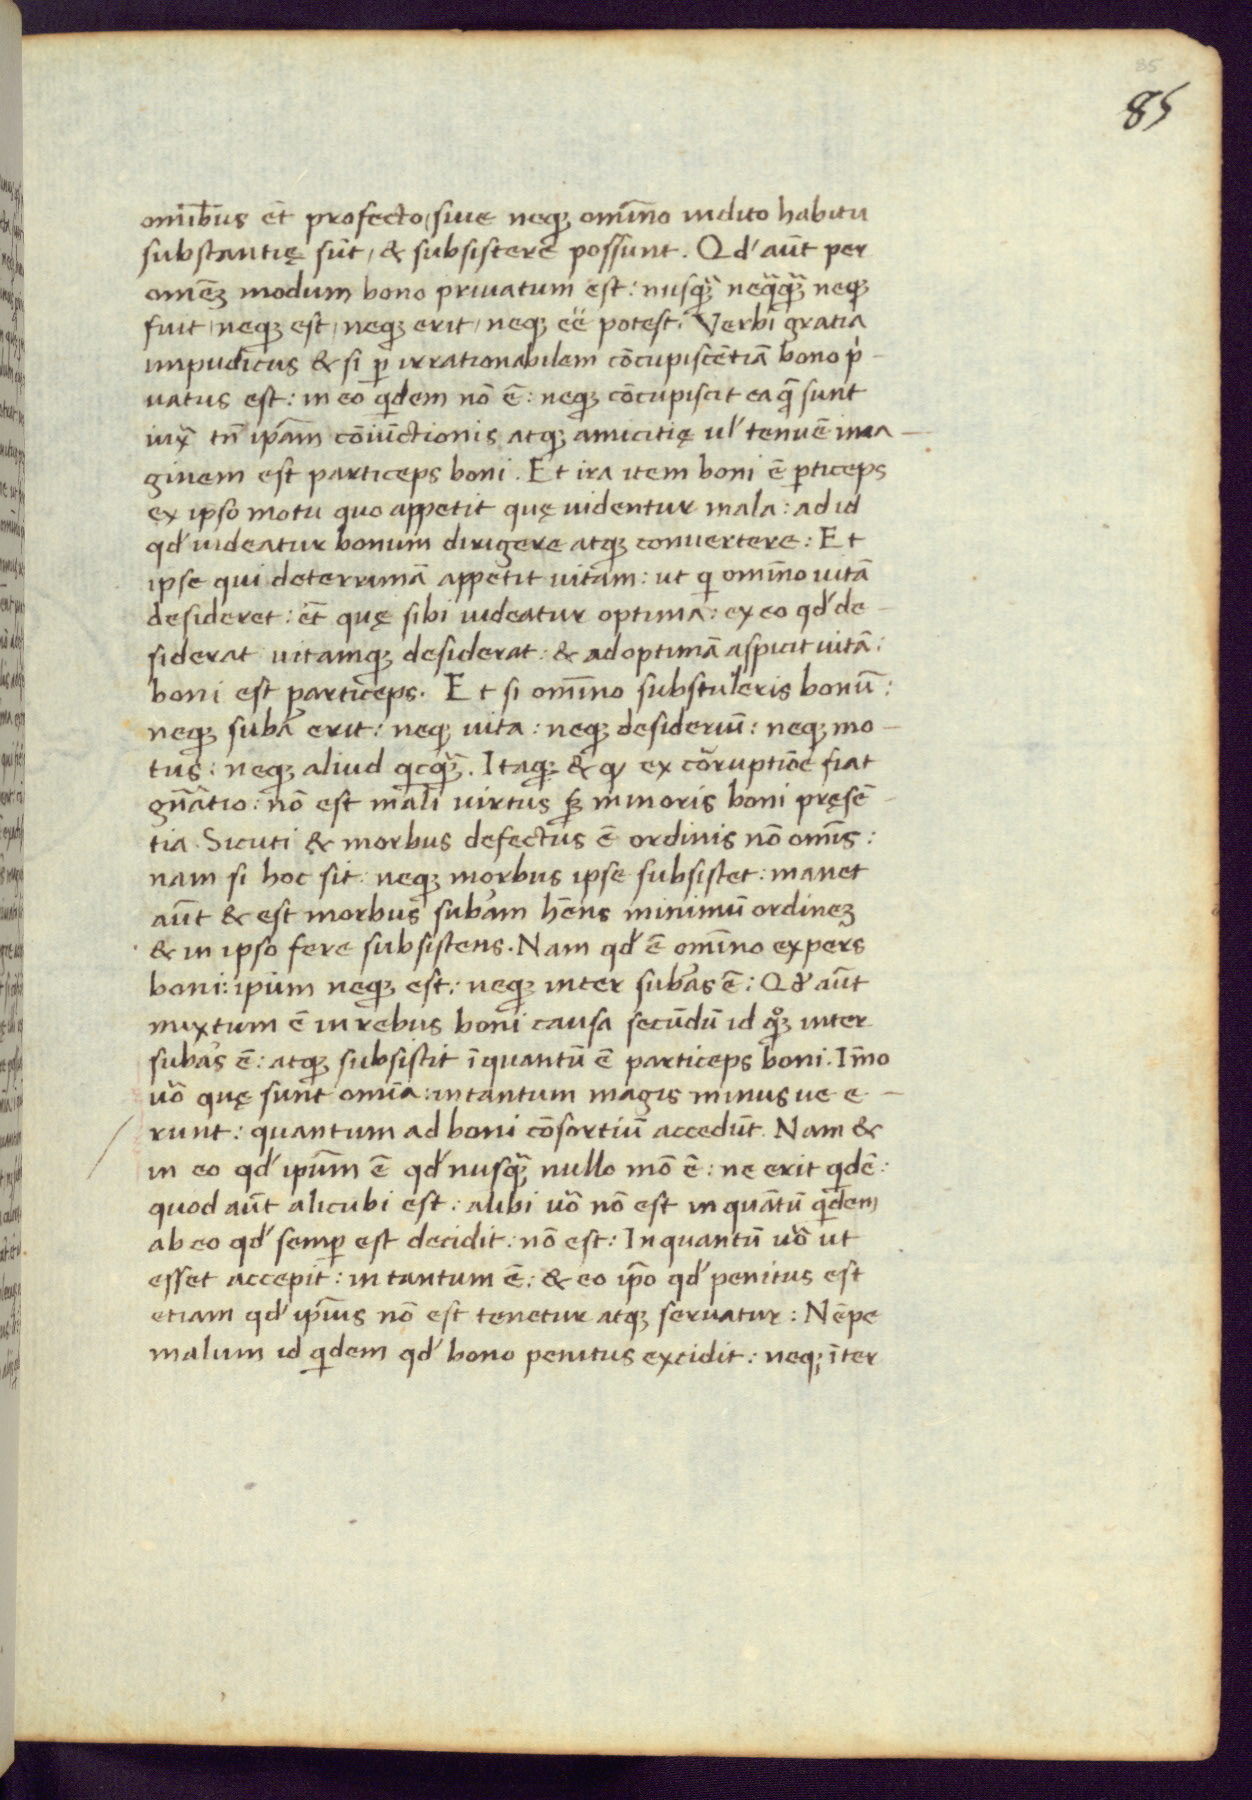 85
85
om̅ibus et̅ profecto / siue neq; om̅ino indito habitu
substantię su̅t / & subsistere possunt. Qd' au̅t per
ome̅z modum bono priuatum est: nusq̃ neq̃q̃ neq;
fuit / neq; est / neq; erit / neq; ee̅ potest. Verbi gratia
impudicus & si ꝑ irrationabilem co̅cupisce̅tia̅ bono p̍-
uatus est: in eo qͥdem no̅ e̅: neq; co̅cupiscit ea q̃ sunt
iux̃ tn̅ ip̅am co̅iu̅ctionis atq; amicitię ul' tenue̅ ima-
ginem est particeps boni. Et ira item boni e̅ ꝑticeps
ex ipso motu quo appetit quę uidentur mala: ad id
qd' uideatur bonum dirigere atq; conuertere: Et
ipse qui deterrima̅ appetit uitam: ut qͥ om̅ino uita̅
desideret: et̅ quę sibi uideatur optima: ex eo qd' de-
siderat uitamq; desiderat: & ad optima̅ aspicit uita̅:
boni est particeps. Et si om̅ino substuleris bonu̅:
neq; suba̅ erit: neq; uita: neq; desideriu̅: neq; mo-
tus: neq; aliud qͥcq̃. Itaq; & ꝙ ex cor̃uptio̅e fiat
gn̅atio: no̅ est mali uirtus sꝫ minoris boni pręse̅-
tia. Sicuti & morbus defectus e̅ ordinis no̅ om̅is:
nam si hoc sit: neq; morbus ipse subsistet: manet
au̅t & est morbus suba̅m he̅ns minimu̅ ordinez
& in ipso fere subsistens. Nam qd' e̅ om̅ino expers
boni: ip̅um neq; est: neq; inter suba̅s e̅: Qd' au̅t
mixtum e̅ in rebus boni causa secu̅du̅ id qͦꝫ inter
suba̅s e̅: atq; subsistit i̅quantu̅ e̅ particeps boni. Im̅o
uo̅ quę sunt om̅ia: intantum magis minus ue e-
runt: quantum ad boni co̅sortiu̅ accedu̅t. Nam &
in eo qd' ip̅um e̅ qd' nusq̃ nullo mo̅ e̅: ne erit qͥde̅:
quod au̅t alicubi est: alibi uo̅ no̅ est in qua̅tu̅ qͥdem
ab eo qd' semꝑ est decidit: no̅ est: Inquantu̅ uo̅ ut
esset accepit: in tantum e̅: & eo ip̅o qd' penitus est
etiam qd' ip̅ius no̅ est tenetur atq; seruatur: Ne̅pe
malum id qͥdem qd' bono penitus excidit: neq; i̅ter